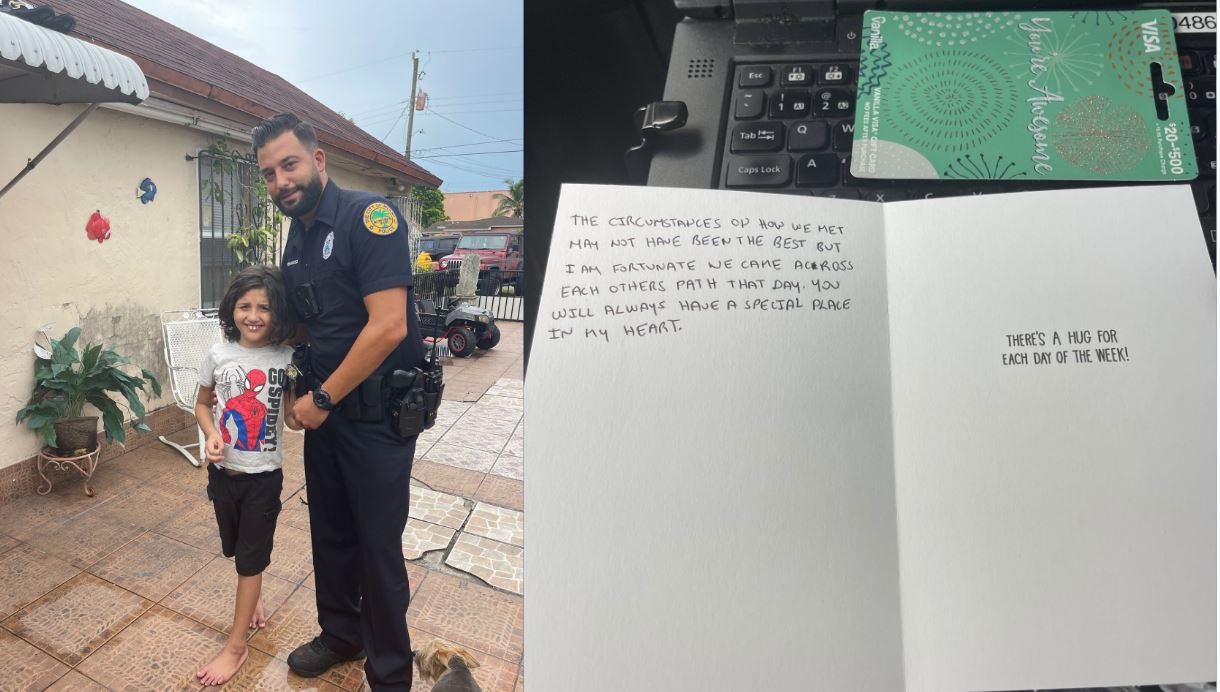 POLICE
GO SPIDEY!
THE CIRCUMSTANCES ON HOW WE MET
MAY NOT HAVE BEEN THE BEST BUT
I AM FORTUNATE WE CAME ACROSS
EACH OTHERS PATH THAT DAY. YOU
WILL ALWAYS HAVE A SPECIAL PLACE
IN MY HEART.
THERE'S A HUG FOR
EACH DAY OF THE WEEK!
Vanilla
VANILLA VISA® GIFT CARD
NO FEES AFTER PURCHASE
You're Awesome
VISA
$20-$500
0486
Esc
F1
F2
~
`
!
1
@
2
Tab
Q
W
Caps Lock
A
X